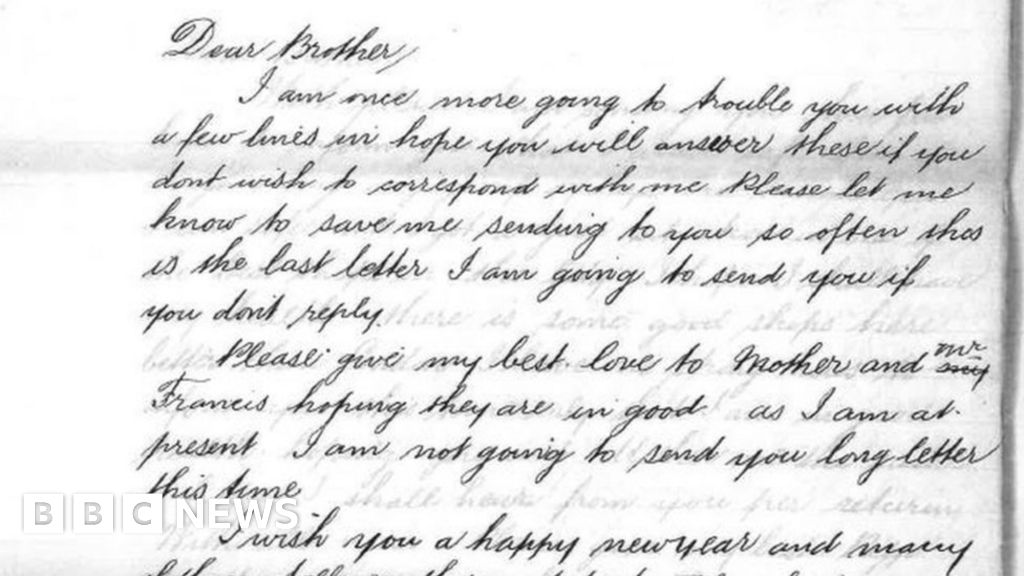 Dear Brother,
I am once more going to trouble you with
a few lines in hope you will answer these if you
dont wish to correspond with me Please let me
know to save me sending to you so often this
is the last letter I am going to send you if
you dont reply.
Please give my best love to Mother and mr my
Francis hoping they are in good as I am at
present I am not going to send you long letter
this time
I wish you a happy newyear and many
BBC NEWS